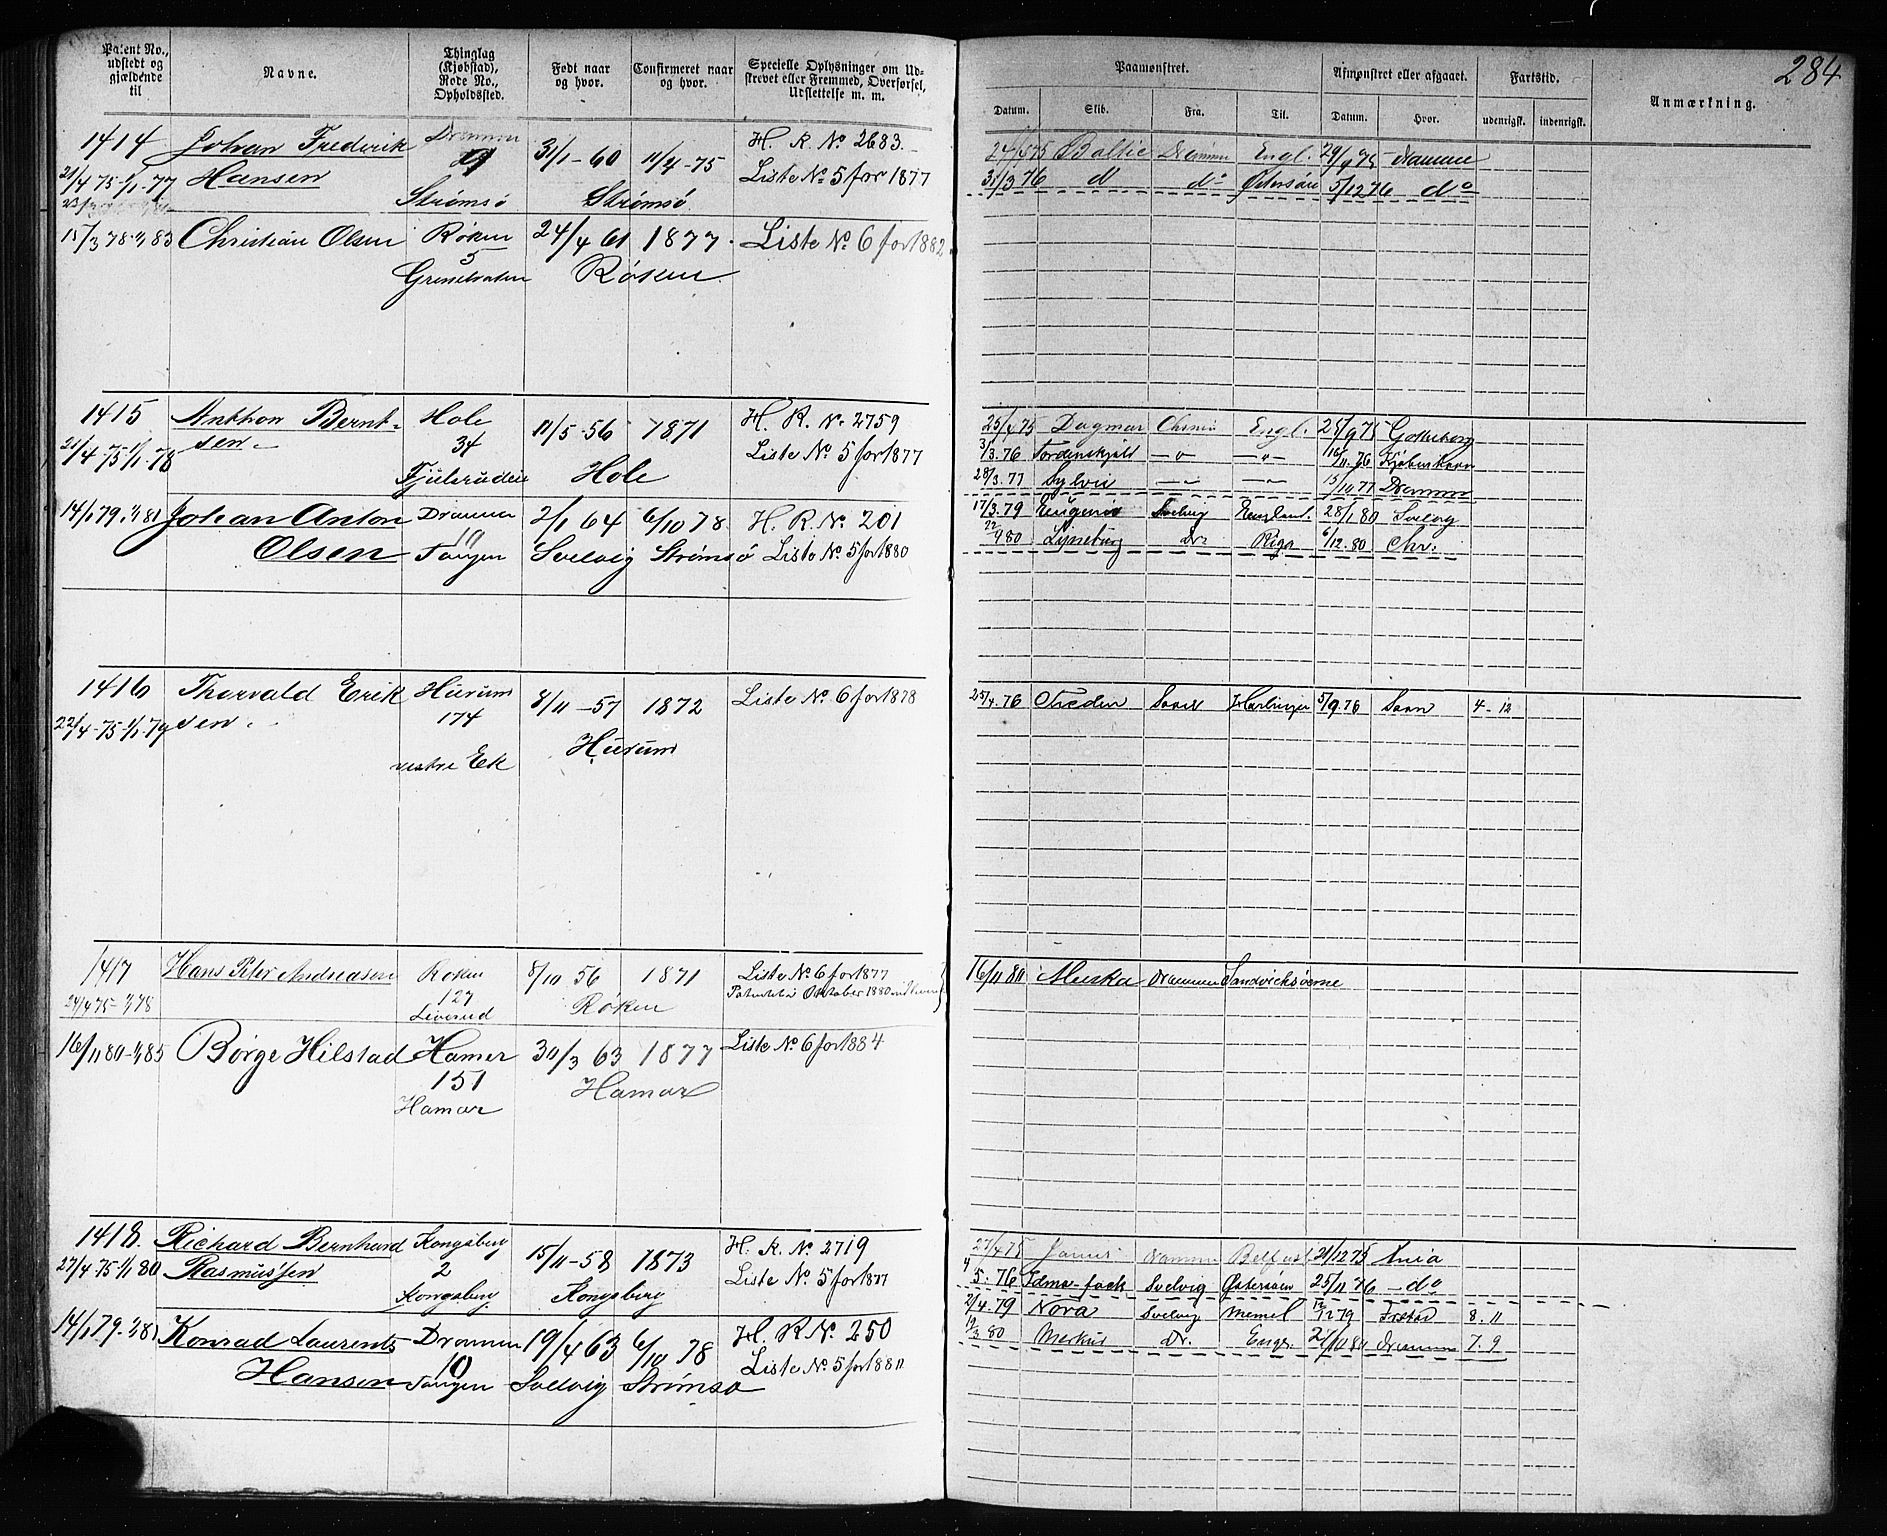 284
Patent No., udstedt og gjældende til
Navne.
Thinglag (Kjøbstad), Rode No., Opholdssted.
Født naar og hvor.
Confirmeret naar og hvor.
Specielle Oplysninger om Udskrevet eller Fremmed, Overførsel, Udslettelse m. m.
Paamønstret.
Afmønstret eller afgaaet.
Fartstid.
Anmærkning.
Datum. Skib. Fra. Til. Datum. Hvor. udenrigsk. indenrigsk.
1414 Johan Frederik 31/1-60 11/4-75 H. R. No 2683.
21/4 75-1/1-77 Hansen Liste No 5 for 1877
Strømsø Strømsø
24/ 75 Baltic Engl. 29/9 75
31/3 76 do Østersøen 5/12 76 do
15/3 78-1/1 83 Christian Olsen Røken 24/4 61 1877. Liste No 6 for 1882
5
Røken
1415 Anthon Bernt- Hole 11/5-56 1871 H. R. No 2759
sen. 34 Liste No 5 for 1877
21/4-75-1/1-78 Hole
25/4 75 Dagmar Engl. 25/9 75 Gotteborg
3/3.76 Tordenskjold 16/11.76 Kjøbenhavn
28/3.77 Sylvia 15/10 77 Drammen
14/1 79-1/1 81 Johan Anton Drammen 2/1 64 6/10 78 H. R. No 201
Olsen 10 Liste No 5 for 1880
Tangen Svelvig Strømsø
17/3.79 Eugenie Svelvig England. 28/1 80 Svelvig
Dr. Riga 6/12.80 Chr.
1416 Thorvald Erik Hurum 8/11-57 1872 Liste No 6 for 1878
sen. 174
22/4-75-1/1-79 Hurum
vestre Ek
25/4.76 Harlingen 5/9 76 4-12
1417 Hans Peter Andreasen Røken 8/10 56 1871 Liste No 6 for 1877
24/4 75-1/1 78 127 Oktober 1880
Røken
16/11 80 Drammen
16/11 80-1/1 85 Børge Hilstad Hamar 30/3 63 1877 Liste No 6 for 1884
151
Hamar Hamar
1418. Richard Bernhard Kongsberg 15/11-58 1873 H. R. No 2719
27/4-75-1/1 80 Rasmussen 2 Liste No 5 for 1877
Kongsberg Kongsberg
27/4 75 Belfast 21/12 75
5.76 Svelvig Østersøen 25/11 76 do
14/1 79-1/1 81 Konrad Laurents Drammen 19/4 63 6/10 78 H. R. No 250
Hansen 10 Liste No 5 for 1880
Tangen Svelvig Strømsø
2/4.79 Nora Svelvig Memel 12/12 79 8.11
19/3 80 Merkur Dr. Engl. 27/10 80 Drammen 7.9